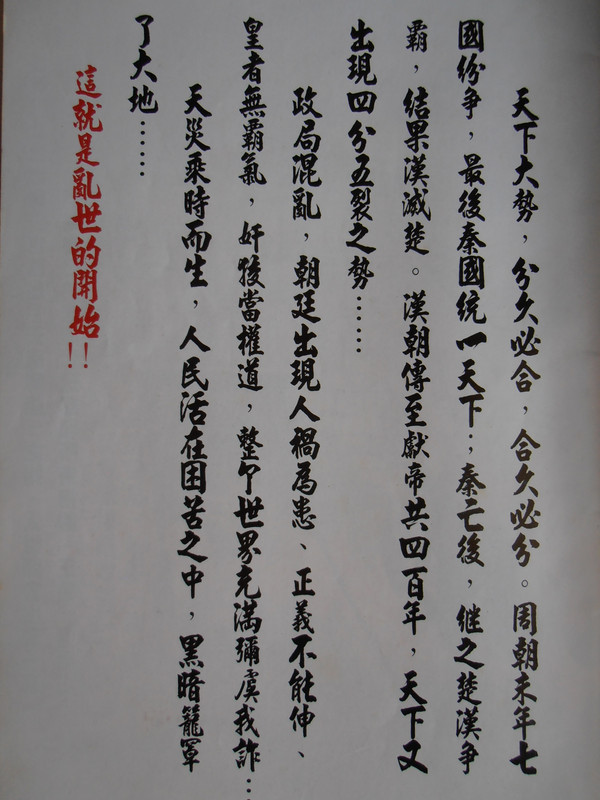 天下大勢，分久必合，合久必分。周朝末年七
國紛爭，最後秦國統一天下；秦亡後，继之楚漢爭
霸，結果漢滅楚。漢朝傳至獻帝共四百年，天下又
出現四分五裂之勢……
政局混亂，朝廷出現人禍為患、正義不能伸、
皇者無霸氣，奸狡當權道，整个世界充滿彌虞我詐…
天災乘時而生，人民活在困苦之中，黑暗籠罩
了大地……
這就是亂世的開始！！